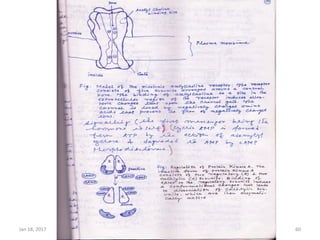 Pore
Acetyl Choline
binding site
outside
Plasma membrane
inside
Gate
Fig: Model of the nicotinic acetylcholine receptor. The receptor
consists of five subunits arranged around a central
pore. The binding of acetylcholine to a site in the
extracellular region of the receptor induces
changes that open the channel gate. The
channel is lined by negatively charged amino
acids that prevent the flow of negatively charged
ions.
signalling (the first messenger being the
hormone itself) Cyclic AMP is formed
from ATP by the action of adenylyl
cyclase & degraded to AMP by cAMP
Phosphodiesterase.
Fig: Regulation of Protein Kinase A. The
inactive form of protein kinase A
consists of two regulatory (R) & two
catalytic (C) subunits. Binding of
cAMP to the regulatory subunits induces
a conformational change that leads
to dissociation of catalytic
units, which are then enzymati-
cally active
Jan 16, 2017
60